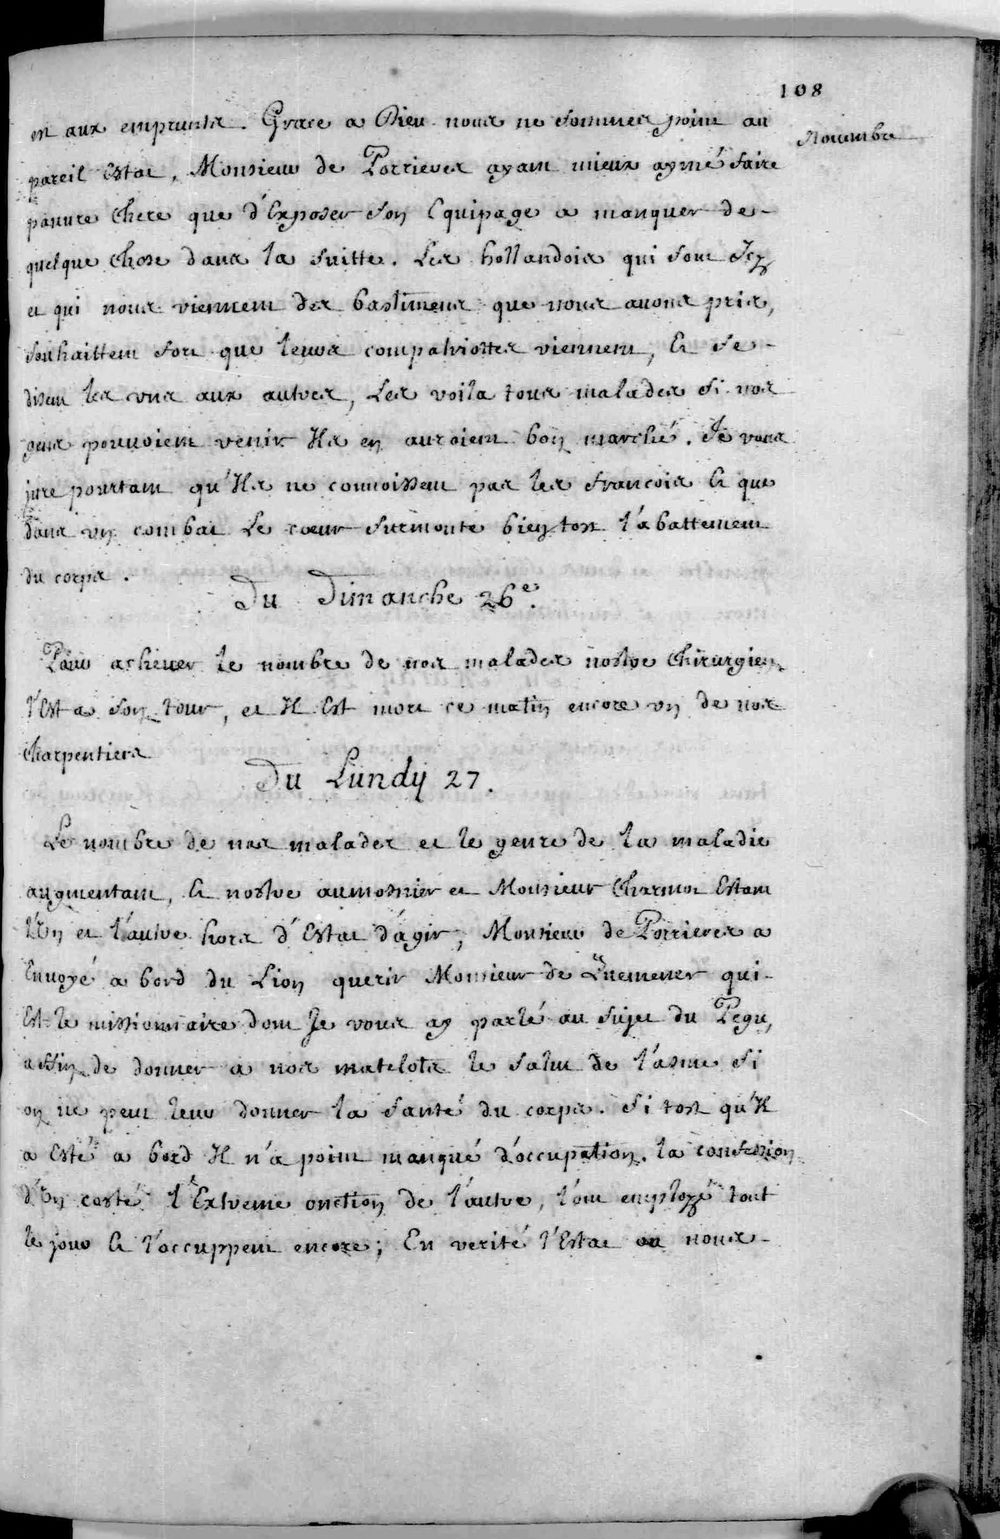 108
Nouembre
en aux emprunts. Grace a Dieu nous ne sommes point au
pareil Estat, Monsieur de Porrieres ayant mieux aymé faire
pauure Chere que d'Exposer son Equipage a manquer de-
quelque Chose dans la suitte. Les hollandois qui sont Icy
et qui nous viennent des bastimens que nous auons pris,
souhaittent fort que leurs compatriottes viennent, Et se-
disent les vns aux autres, Les voila tous malades si nos
gens pouuoient venir Ils en auroient bon marché. Je vous
jure pourtant qu'Ils ne connoissent pas les francois Et que
dans vn combat Le cœur surmonte bien tost l'abattement
du corps.
Du Dimanche 26e.
Pour acheuer le nombre de nos malades nostre Chirurgien
l'Est a son tour, et Il Est mort ce matin encore vn de nos
Charpentiers
Du Lundy 27.
Le nombre de nos malades et le genre de la maladie
augmentant, Et nostre aumosnier et Monsieur Charmot Estant
l'Vn et l'autre hors d'Estat d'agir, Monsieur de Porrieres a
Enuoyé a bord du Lion querir Monsieur de Quemener qui-
Est le missionnaire dont Je vous ay parlé au sujet du Pegu,
affin de donner a nos matelots le salut de l'asme si
on ne peut leur donner la santé du corps. Si tost qu'Il
a Esté a bord Il n'a point manqué d'occupation. la confession
d'Vn costé l'Extreme onction de l'autre, l'ont employé tout
le jour Et l'occuppent encore; En verité l'Estat ou nous-